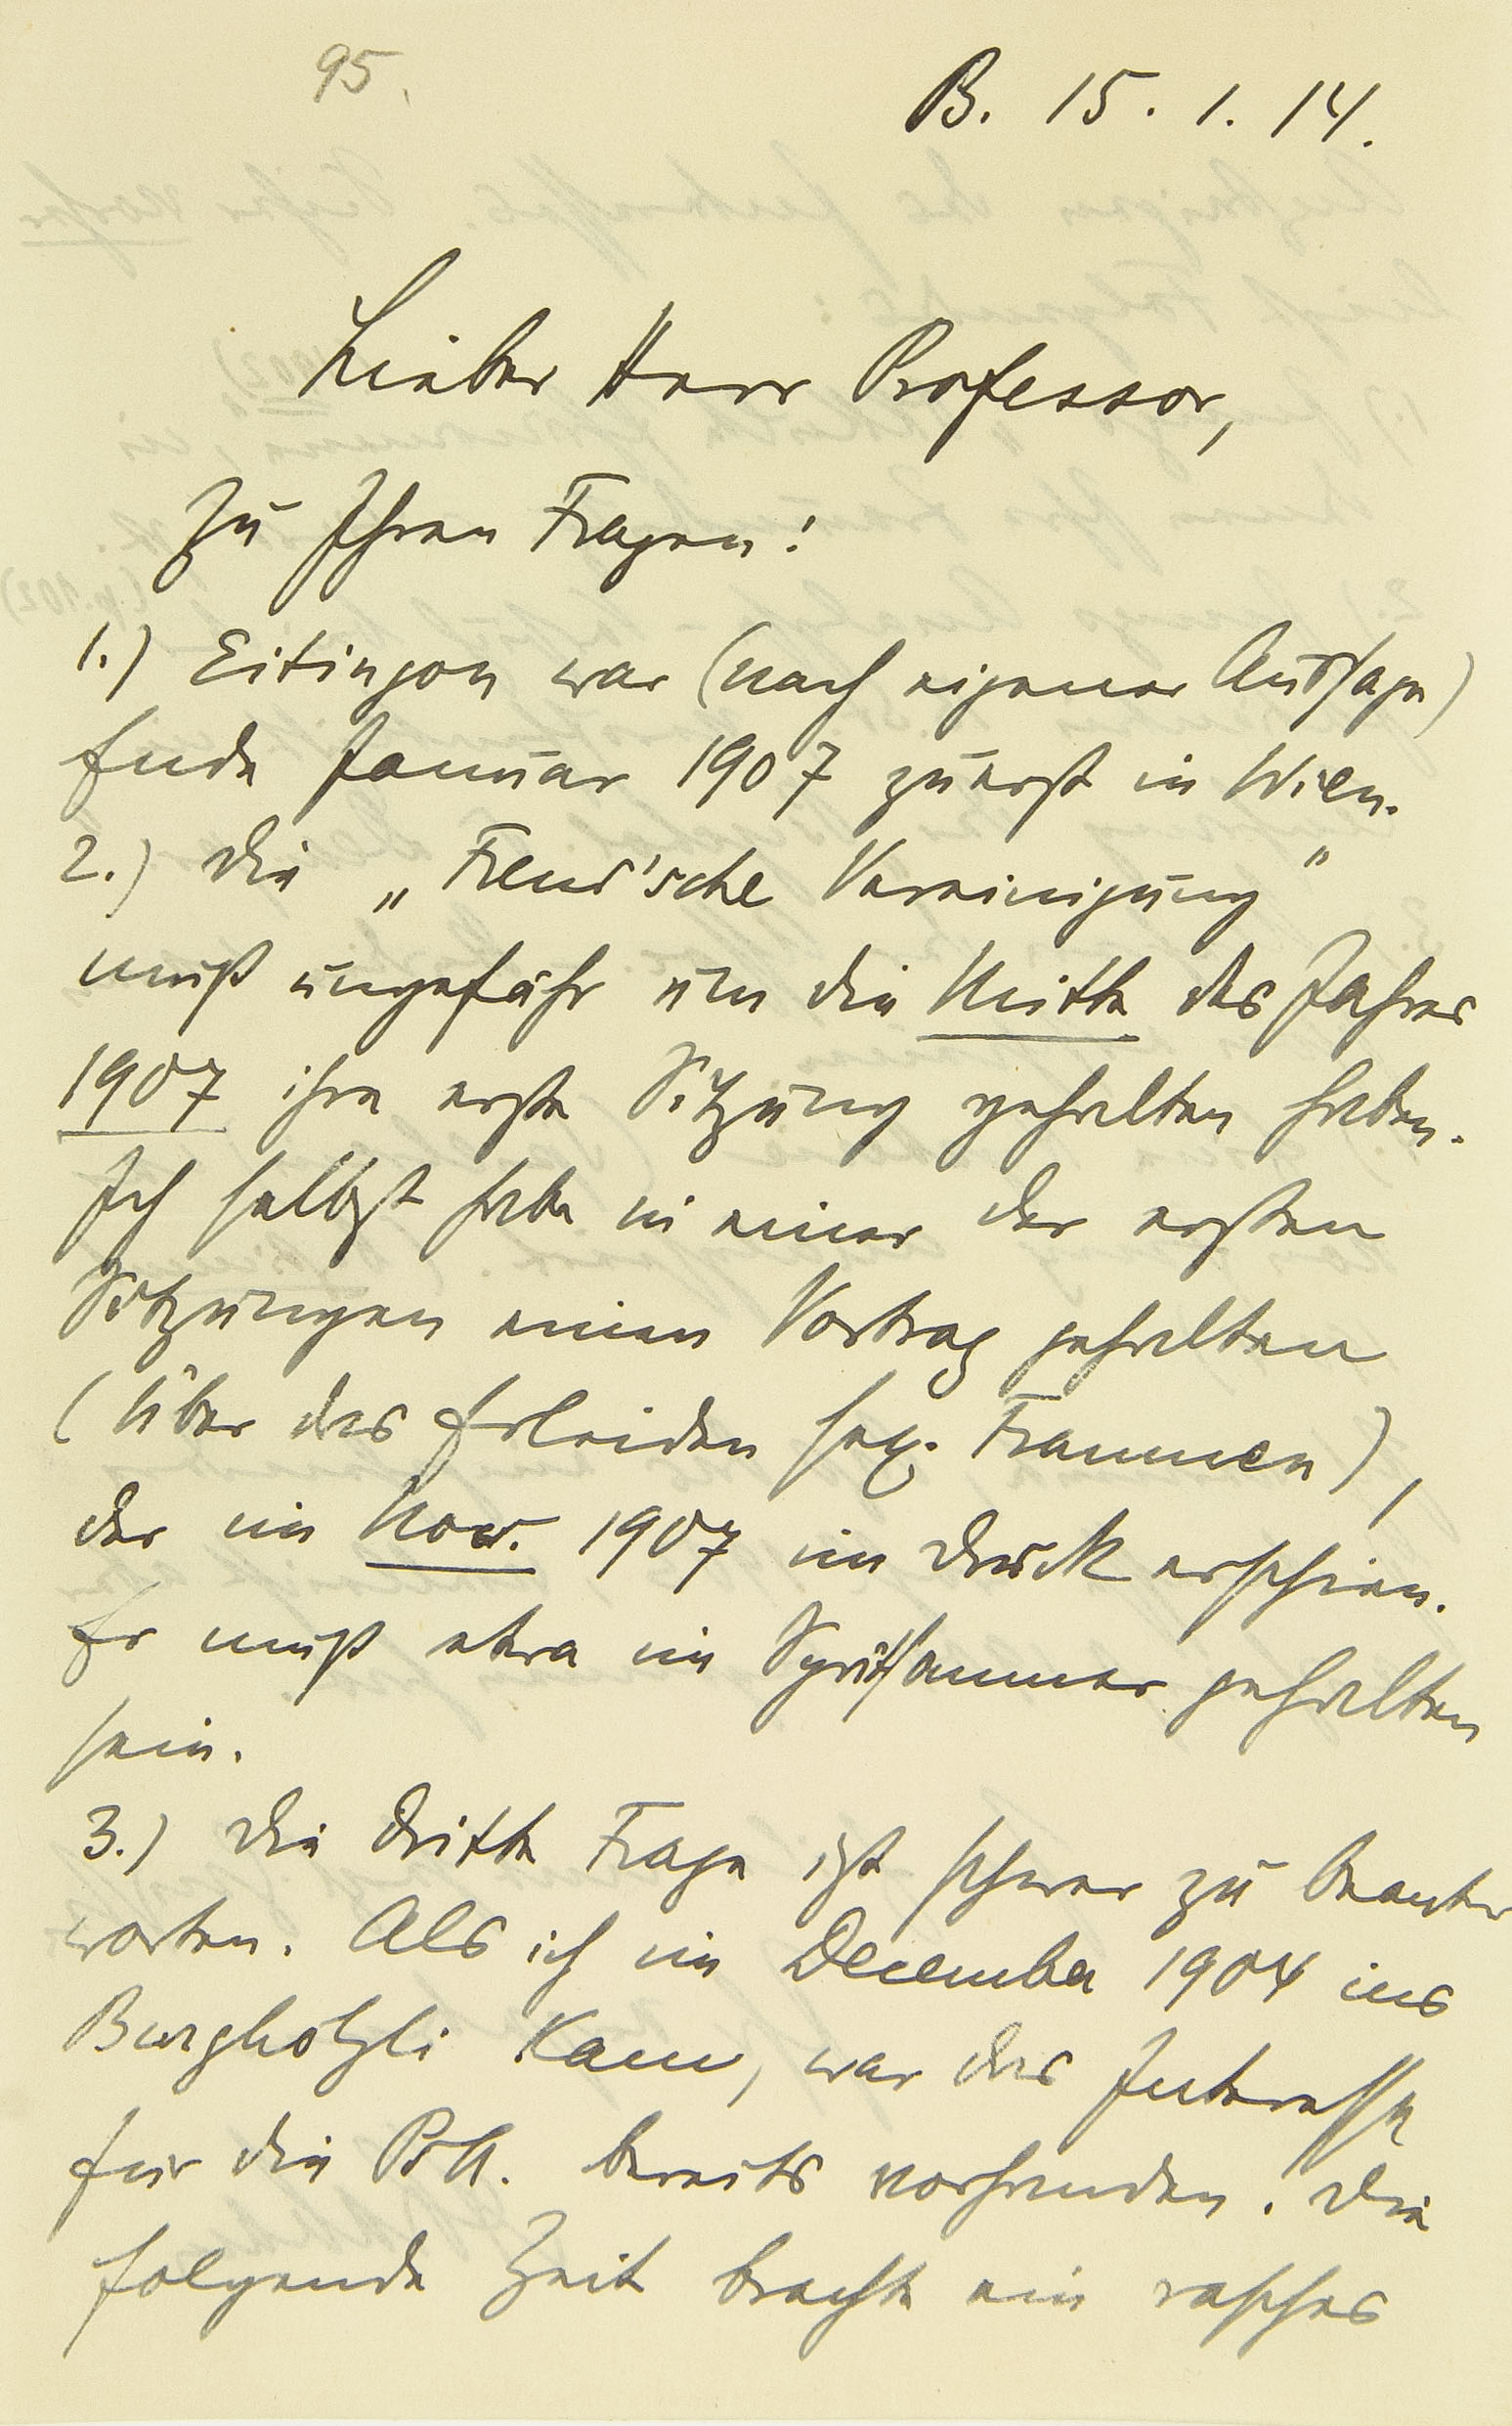 95.
B. 15. 1. 14.
Lieber Herr Professor,
Zu Ihren Fragen:
1.) Eitingon war (nach eigener Aussage)
Ende Januar 1907 zuerst in Wien.
2.) Die „Freud'sche Vereinigung"
muß ungefähr um die Mitte des Jahres
1907 ihre erste Sitzung gehalten haben.
Ich selbst habe in einer der ersten
Sitzungen einen Vortrag gehalten
(Über das Erleiden sex. Traumen),
der im Nov. 1907 im Druck erschien.
Er muß etwa im Spätsommer gehalten
sein.
3.) Die dritte Frage ist schwer zu beant-
worten. Als ich im December 1904 ins
Burghölzli kam, war das Interesse
für die PsA. bereits vorhanden. Die
folgende Zeit brachte ein rasches